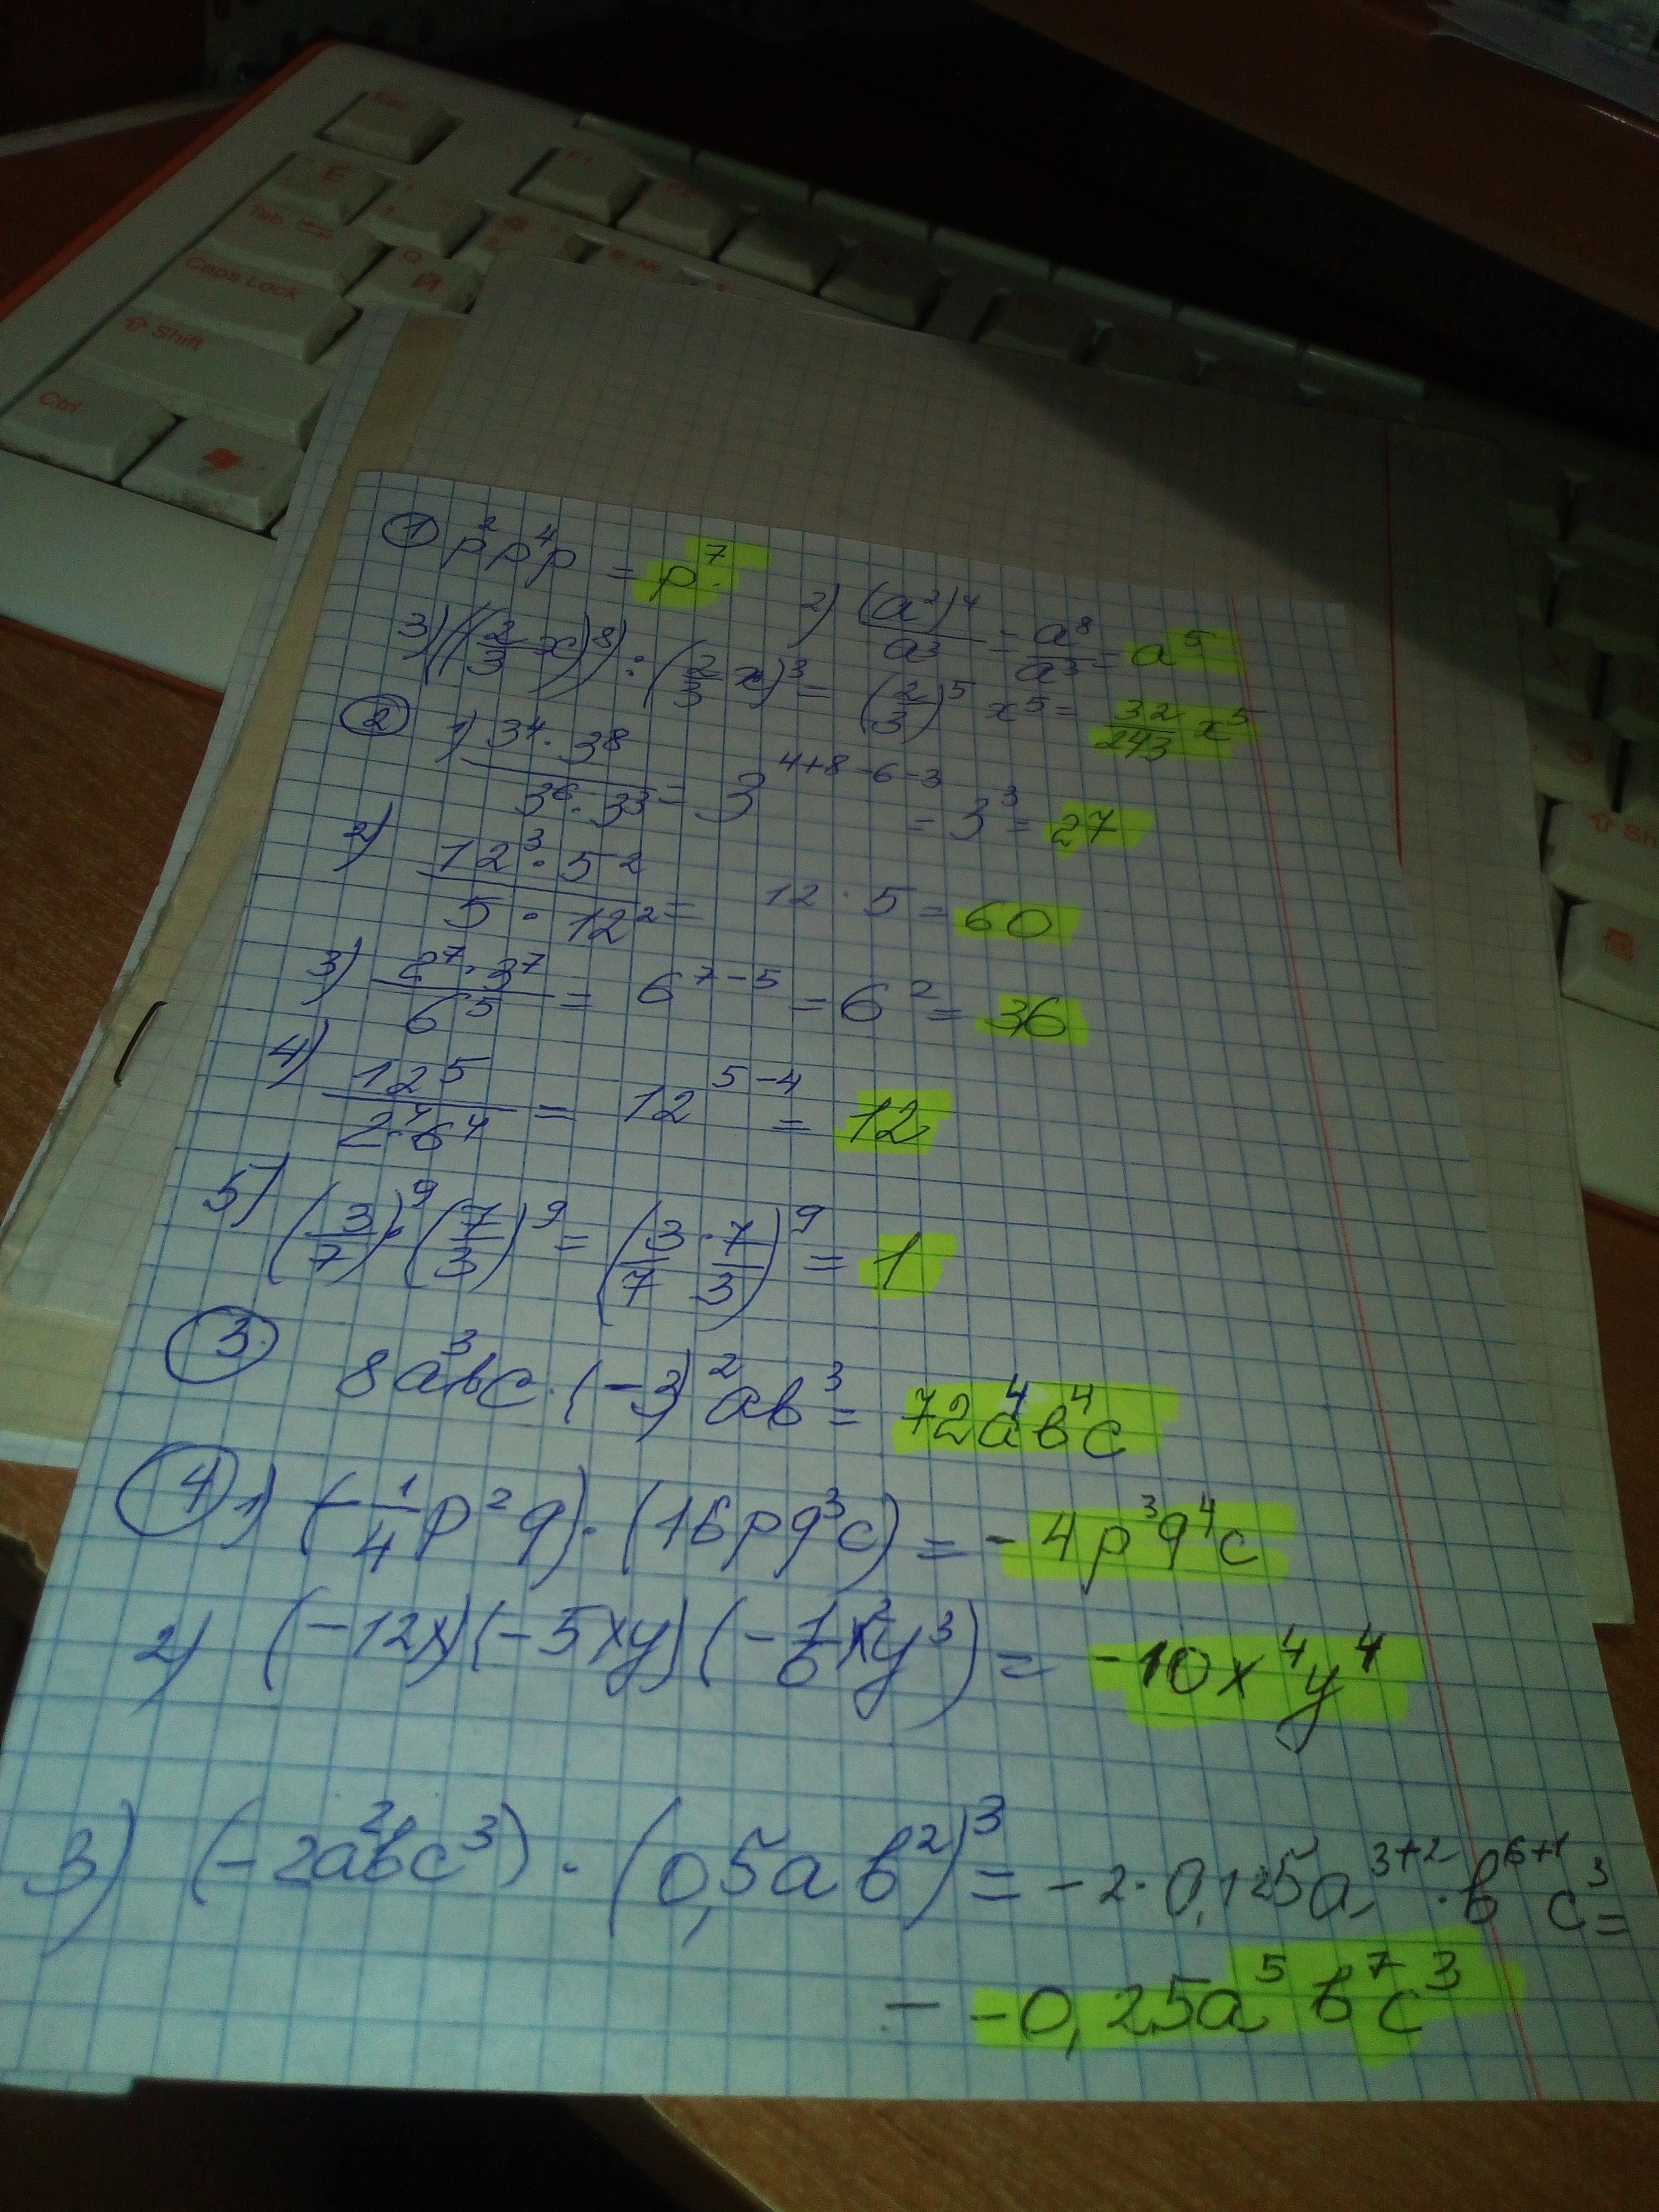 Esc
F1
Ё
Tab
Q
Й
Caps Lock
Shift
Ctrl
① p²p⁴p = p⁷.
2) (a²)⁴/a³ = a⁸/a³ = a⁵
3) ((2/3 x)⁸) : (2/3 x)³ = (2/3)⁵ x⁵ = 32/243 x⁵
② 1) 3⁴ · 3⁸ / 3⁶ · 3³ = 3⁴⁺⁸⁻⁶⁻³ = 3³ = 27
2) 12³ · 5² / 5 · 12² = 12 · 5 = 60
3) 2⁷ · 3⁷ / 6⁵ = 6⁷⁻⁵ = 6² = 36
4) 12⁵ / 2⁴ · 6⁴ = 12⁵⁻⁴ = 12
5) (3/7)⁹ · (7/3)⁹ = (3/7 · 7/3)⁹ = 1
③ 8a³bc · (-3)²ab³ = 72a⁴b⁴c
④ 1) (-1/4 p²q) · (16pq³c) = -4p³q⁴c
2) (-12x)(-5xy)(-1/6 x²y³) = -10x⁴y⁴
3) (-2a²bc³) · (0,5ab²)³ = -2 · 0,125a³⁺² · b⁶⁺¹ c³ =
= -0,25a⁵b⁷c³